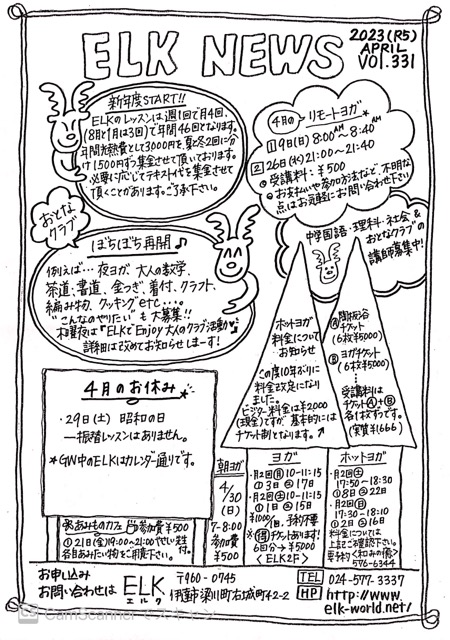 ELK NEWS
2023(R5)
APRIL
VOl.331
新年度START!!
ELKのレッスンは週1回で月4回、
(8月と1月は3回)で年間46回となります。
年間光熱費として3000円を夏と冬2回に分
け1,500円ずつ集金させて頂いております。
必要に応じてテキスト代も集金させて
頂くことがあります。ご了承下さい。
4月の リモートヨガ
①9日(日) 8:00AM~8:40AM
②26日(水) 21:00~21:40
受講料:¥500
お支払いや参加方法など、不明な
点はお気軽にお問い合わせ下さい
おとな
クラブ
ぼちぼち再開♪
例えば…夜ヨガ、大人の数学、
茶道、書道、金つぎ、着付、クラフト、
編み物、クッキングetc…。
こんなのやりたい も大募集!!
相言葉は"ELKでEnjoy大人のクラブ活動"
詳細は改めてお知らせしまーす!
中学国語・理科・社会&
おとなクラブの
講師募集中!
ホットヨガ
料金について
お知らせ
この度10年ぶりに
料金改定になり
ました。
ビジター料金は¥2,000
(現金)ですが、基本的には
チケット制となります。
Ⓐ
チケット
(6枚¥5000)
Ⓑ ヨガチケット
(6枚¥5000)
受講料は
チケットⒶ+Ⓑ
各1枚ずつです。
(実質¥1,666)
4月のお休み
・29日(土) 昭和の日
―振替レッスンはありません。
*GW中のELKはカレンダー通りです。
あみものカフェ 参加費¥500
①21日(金)19:00~21:00でやってい
各自あみたい物をご用意下さい。
朝ヨガ
4/30(日)
7-8:00
参加費
¥500
ヨガ
・月2回(月)10-11:15
①3日 ②17日
・月2回(土)10-11:15
①1日 ②15日
¥1000/1回、予約不要
チケットあります!
6回分→¥5000
<ELK2F>
ホットヨガ
・月2回(土)
17:30-18:50
①8日 ②22日
・月2回(日)
17:30-18:10
①2日 ②16日
料金については
上記ご確認下さい。
要予約<和みの癒>
576-6344
お申し込み
お問い合わせは
ELK
エルク
〒960-0745
伊達市梁川町右城町42-2
TEL 024-577-3337
HP http://www.
elk-world.net/
CamScanner